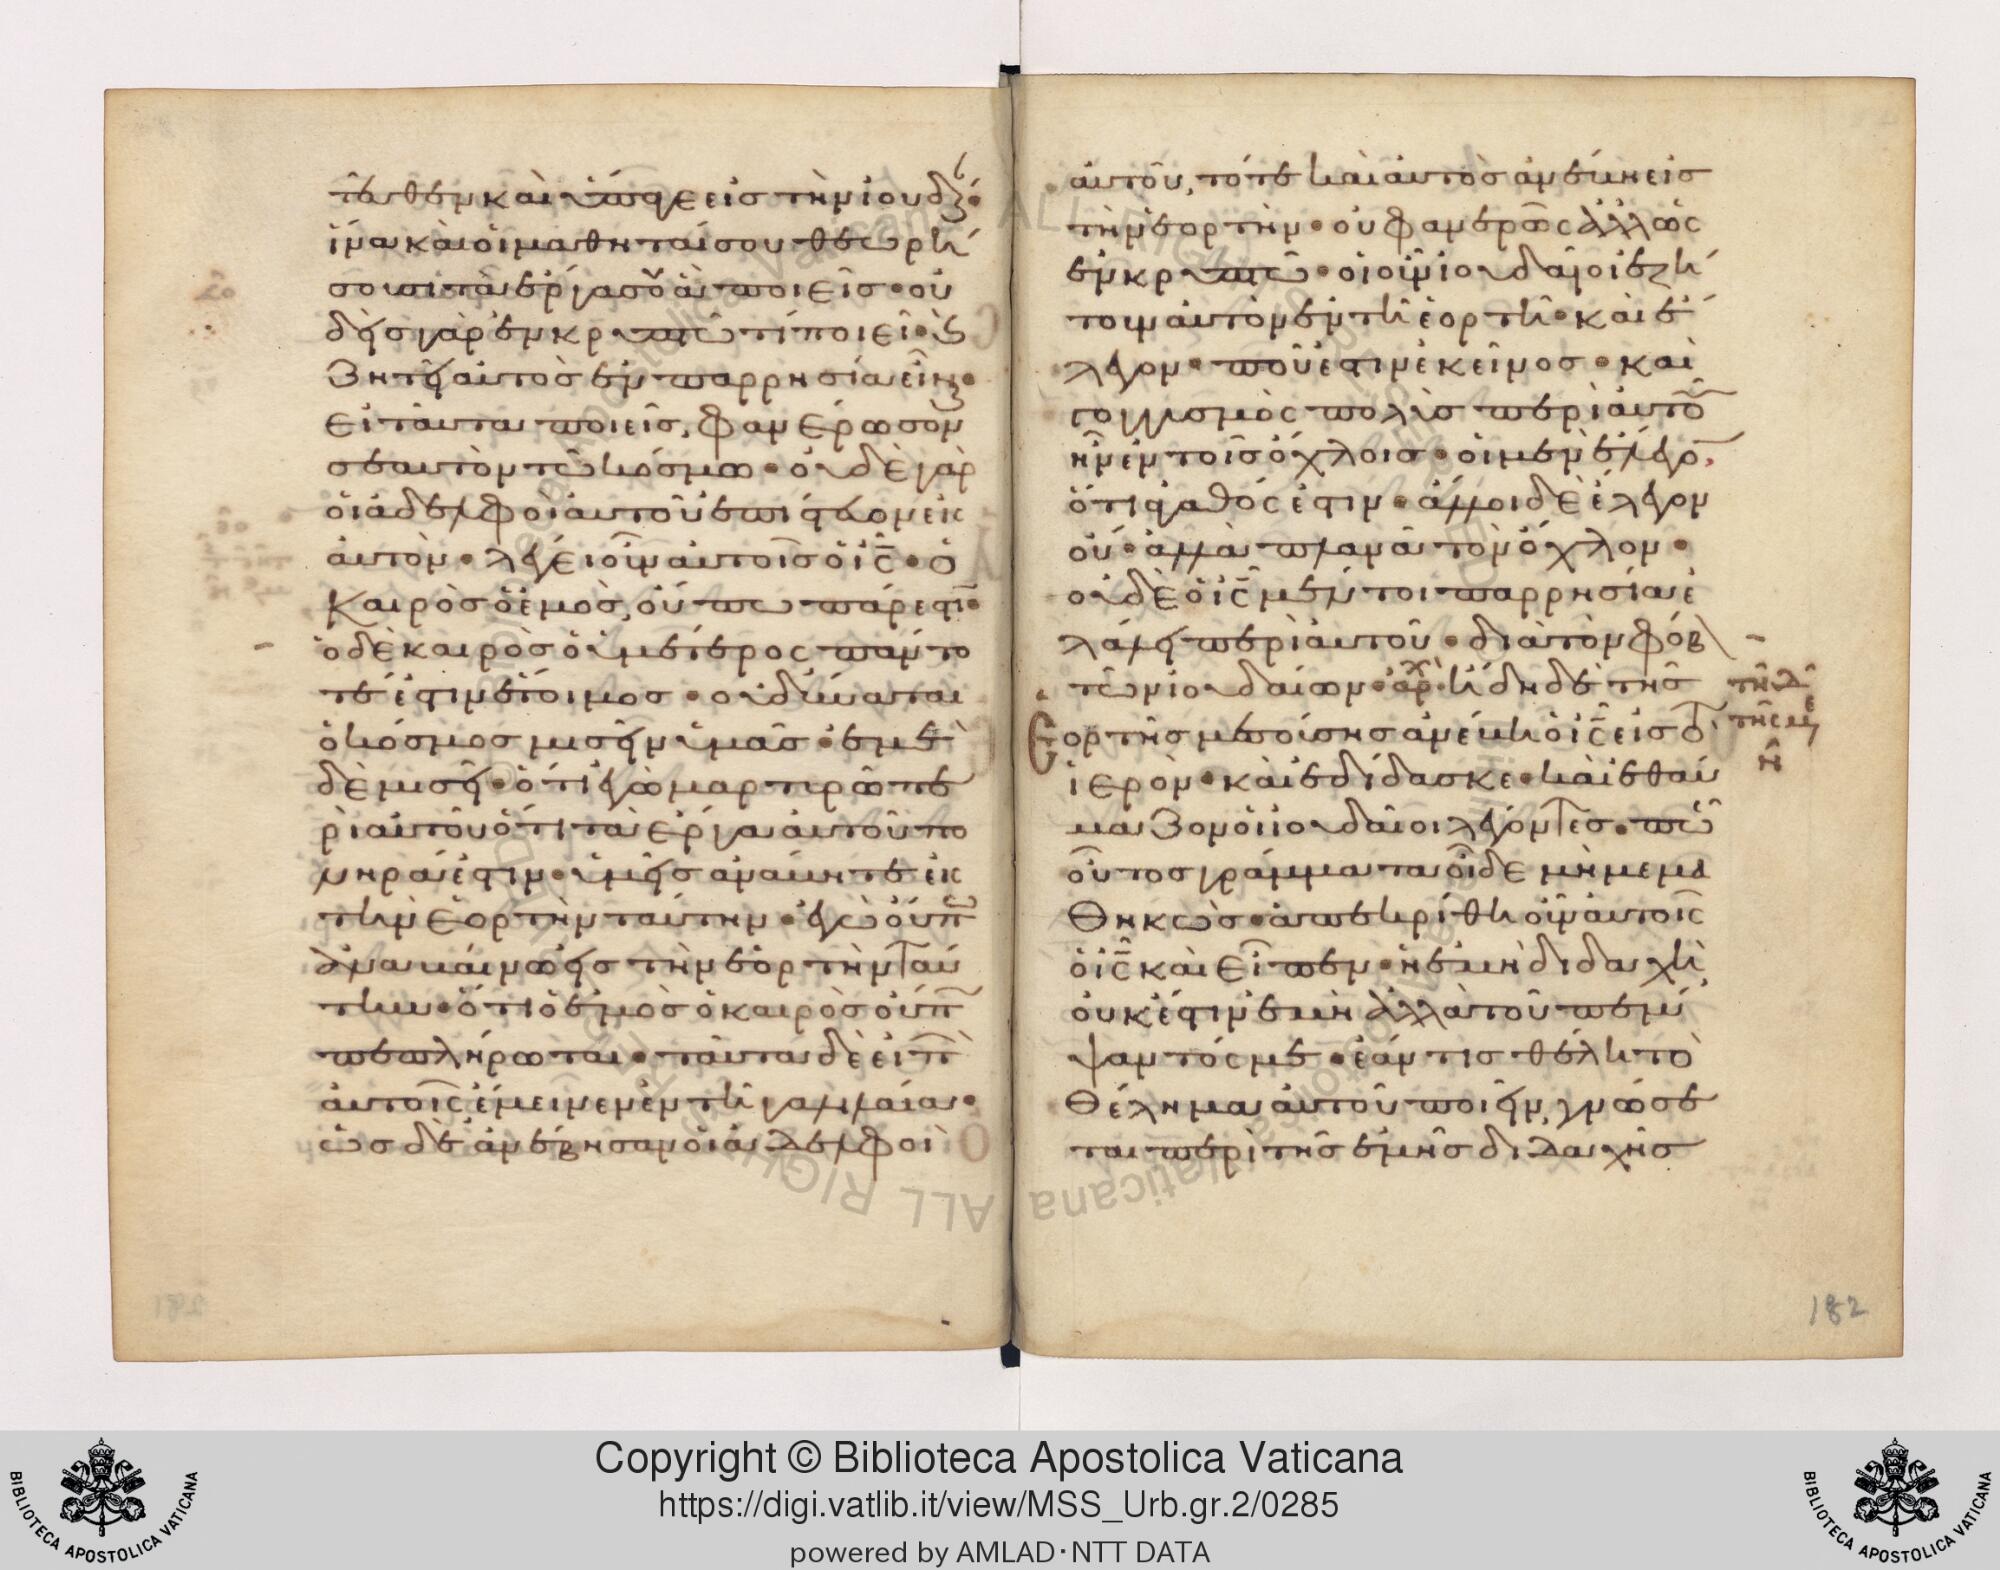 τεῦθεν καὶ ὕπαγε εἰς τὴν ἰουδαί·
ἵνα καὶ οἱ μαθηταί σου θεωρή
σουσι τὰ ἔργα σου ἃ ποιεῖς· οὐ
δεὶς γὰρ ἐν κρυπτῶ τί ποιεῖ· καὶ
ζητεῖ αὐτὸς ἐν παρρησία εἶναι·
εἰ ταῦτα ποιεῖς, φανέρωσον
σεαυτὸν τῶ κόσμω· οὐδὲ γὰρ
οἱ ἀδελφοὶ αὐτοῦ ἐπίστευον εἰς
αὐτόν· λέγει οὖν αὐτοῖς ὁ ις̅· ὁ
καιρὸς ὁ ἐμὸς, οὔπω πάρεστιν·
ὁ δὲ καιρὸς ὁ ὑμέτερος πάντο
τέ ἐστιν ἕτοιμος· οὐ δύναται
ὁ κόσμος μισεῖν ὑμᾶς· ἐμὲ
δὲ μισεῖ· ὅτι ἐγὼ μαρτυρῶ πε
ρὶ αὐτοῦ ὅτι τὰ ἔργα αὐτοῦ πο
νηρά ἐστιν· ὑμεῖς ἀνάβητε εἰς
τὴν ἑορτὴν ταύτην· ἐγὼ οὔπω
ἀναβαίνω εἰς τὴν ἑορτὴν ταύ
την· ὅτι ὁ ἐμὸς ὁ καιρὸς οὔπω
πεπλήρωται· ταῦτα δὲ εἰπὼν
αὐτοῖς ἔμεινεν ἐν τῆ γαλιλαία·
ὡς δὲ ἀνέβησαν οἱ ἀδελφοὶ
αὐτοῦ, τότε καὶ αὐτὸς ἀνέβη εἰς
τὴν ἑορτήν· οὐ φανερῶς ἀλλ' ὡς
ἐν κρυπτῶ· οἱ οὖν ἰουδαῖοι ἐζή
τουν αὐτὸν ἐν τῆ ἑορτῆ· καὶ ἔ
λεγον· ποῦ ἐστιν ἐκεῖνος· καὶ
γογγυσμὸς πολὺς περὶ αὐτοῦ
ἦν ἐν τοῖς ὄχλοις· οἱ μὲν ἔλεγον,
ὅτι ἀγαθός ἐστιν· ἄλλοι δὲ ἔλεγον
οὔ· ἀλλὰ πλανᾶ τὸν ὄχλον·
οὐδεὶς μέντοι παρρησία ἐ
λάλει περὶ αὐτοῦ· διὰ τὸν φόβον
τῶν ἰουδαίων· ἀρχ· ἤδη δὲ τῆς
ἑορτῆς μεσούσης ἀνέβη ὁ ις̅ εἰς τὸ
ἱερὸν· καὶ ἐδίδασκε· καὶ ἐθαύ
μαζον οἱ ἰουδαῖοι λέγοντες· πῶς
οὗτος γράμματα οἶδε μὴ μεμα
θηκώς· ἀπεκρίθη οὖν αὐτοῖς
ὁ ις̅ καὶ εἶπεν· ἡ ἐμὴ διδαχὴ
οὐκ ἔστιν ἐμὴ ἀλλὰ τοῦ πέμ
ψαντός με· ἐάν τις θέλη τὸ
θέλημα αὐτοῦ ποιεῖν, γνώσε
ται περὶ τῆς ἐμῆς διδαχῆς
182
Copyright © Biblioteca Apostolica Vaticana
https://digi.vatlib.it/view/MSS_Urb.gr.2/0285
powered by AMLAD·NTT DATA
BIBLIOTECA APOSTOLICA VATICANA
BIBLIOTECA APOSTOLICA VATICANA